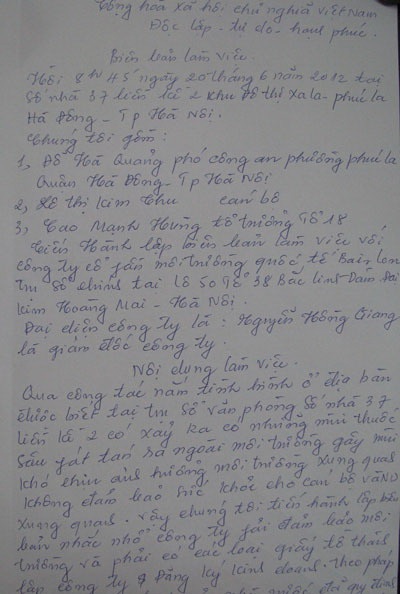 Cộng hòa xã hội chủ nghĩa việt Nam
Độc lập - tự do - hạnh phúc.
Biên bản làm việc.
Hồi 8h 45 ngày 20 tháng 6 năm 2012 tại
Số nhà 37 liền kề 2 khu Đô thị xa la - phúc la
Hà Đông - Tp Hà Nội.
Chúng tôi gồm:
1, Đỗ Hà Quảng phó công an phường phúc la
Quận Hà Đông - Tp Hà Nội
2, thị Kim Thu cán bộ
3, Cao Mạnh Hùng tổ trưởng Tổ 18
Tiến Hành lập biên bản làm việc với
công ty cổ fần môi trường quốc tế
trụ sở chính tại lô 50 Tổ 38 Bắc linh Đàm Đại
kim Hoàng Mai - Hà Nội.
Đại diện công ty là : Nguyễn Hồng Giang
là giám đốc công ty.
Nội dung làm việc.
Qua công tác nắm tình hình ở địa bàn
được biết tại trụ sở văn phòng số nhà 37
liền kề 2 có xảy ra có những mùi thuốc
sâu fát tán ra ngoài môi trường gây mùi
khó chịu ảnh hưởng môi trường xung quanh
không đảm bảo sức khỏe cho cán bộ và ND
xung quanh. vậy chúng tôi tiến hành lập biên
bản nhắc nhở công ty fải đảm bảo môi
trường và phải có các loại giấy tờ thành
lập công ty & Đăng ký kinh doanh. theo pháp